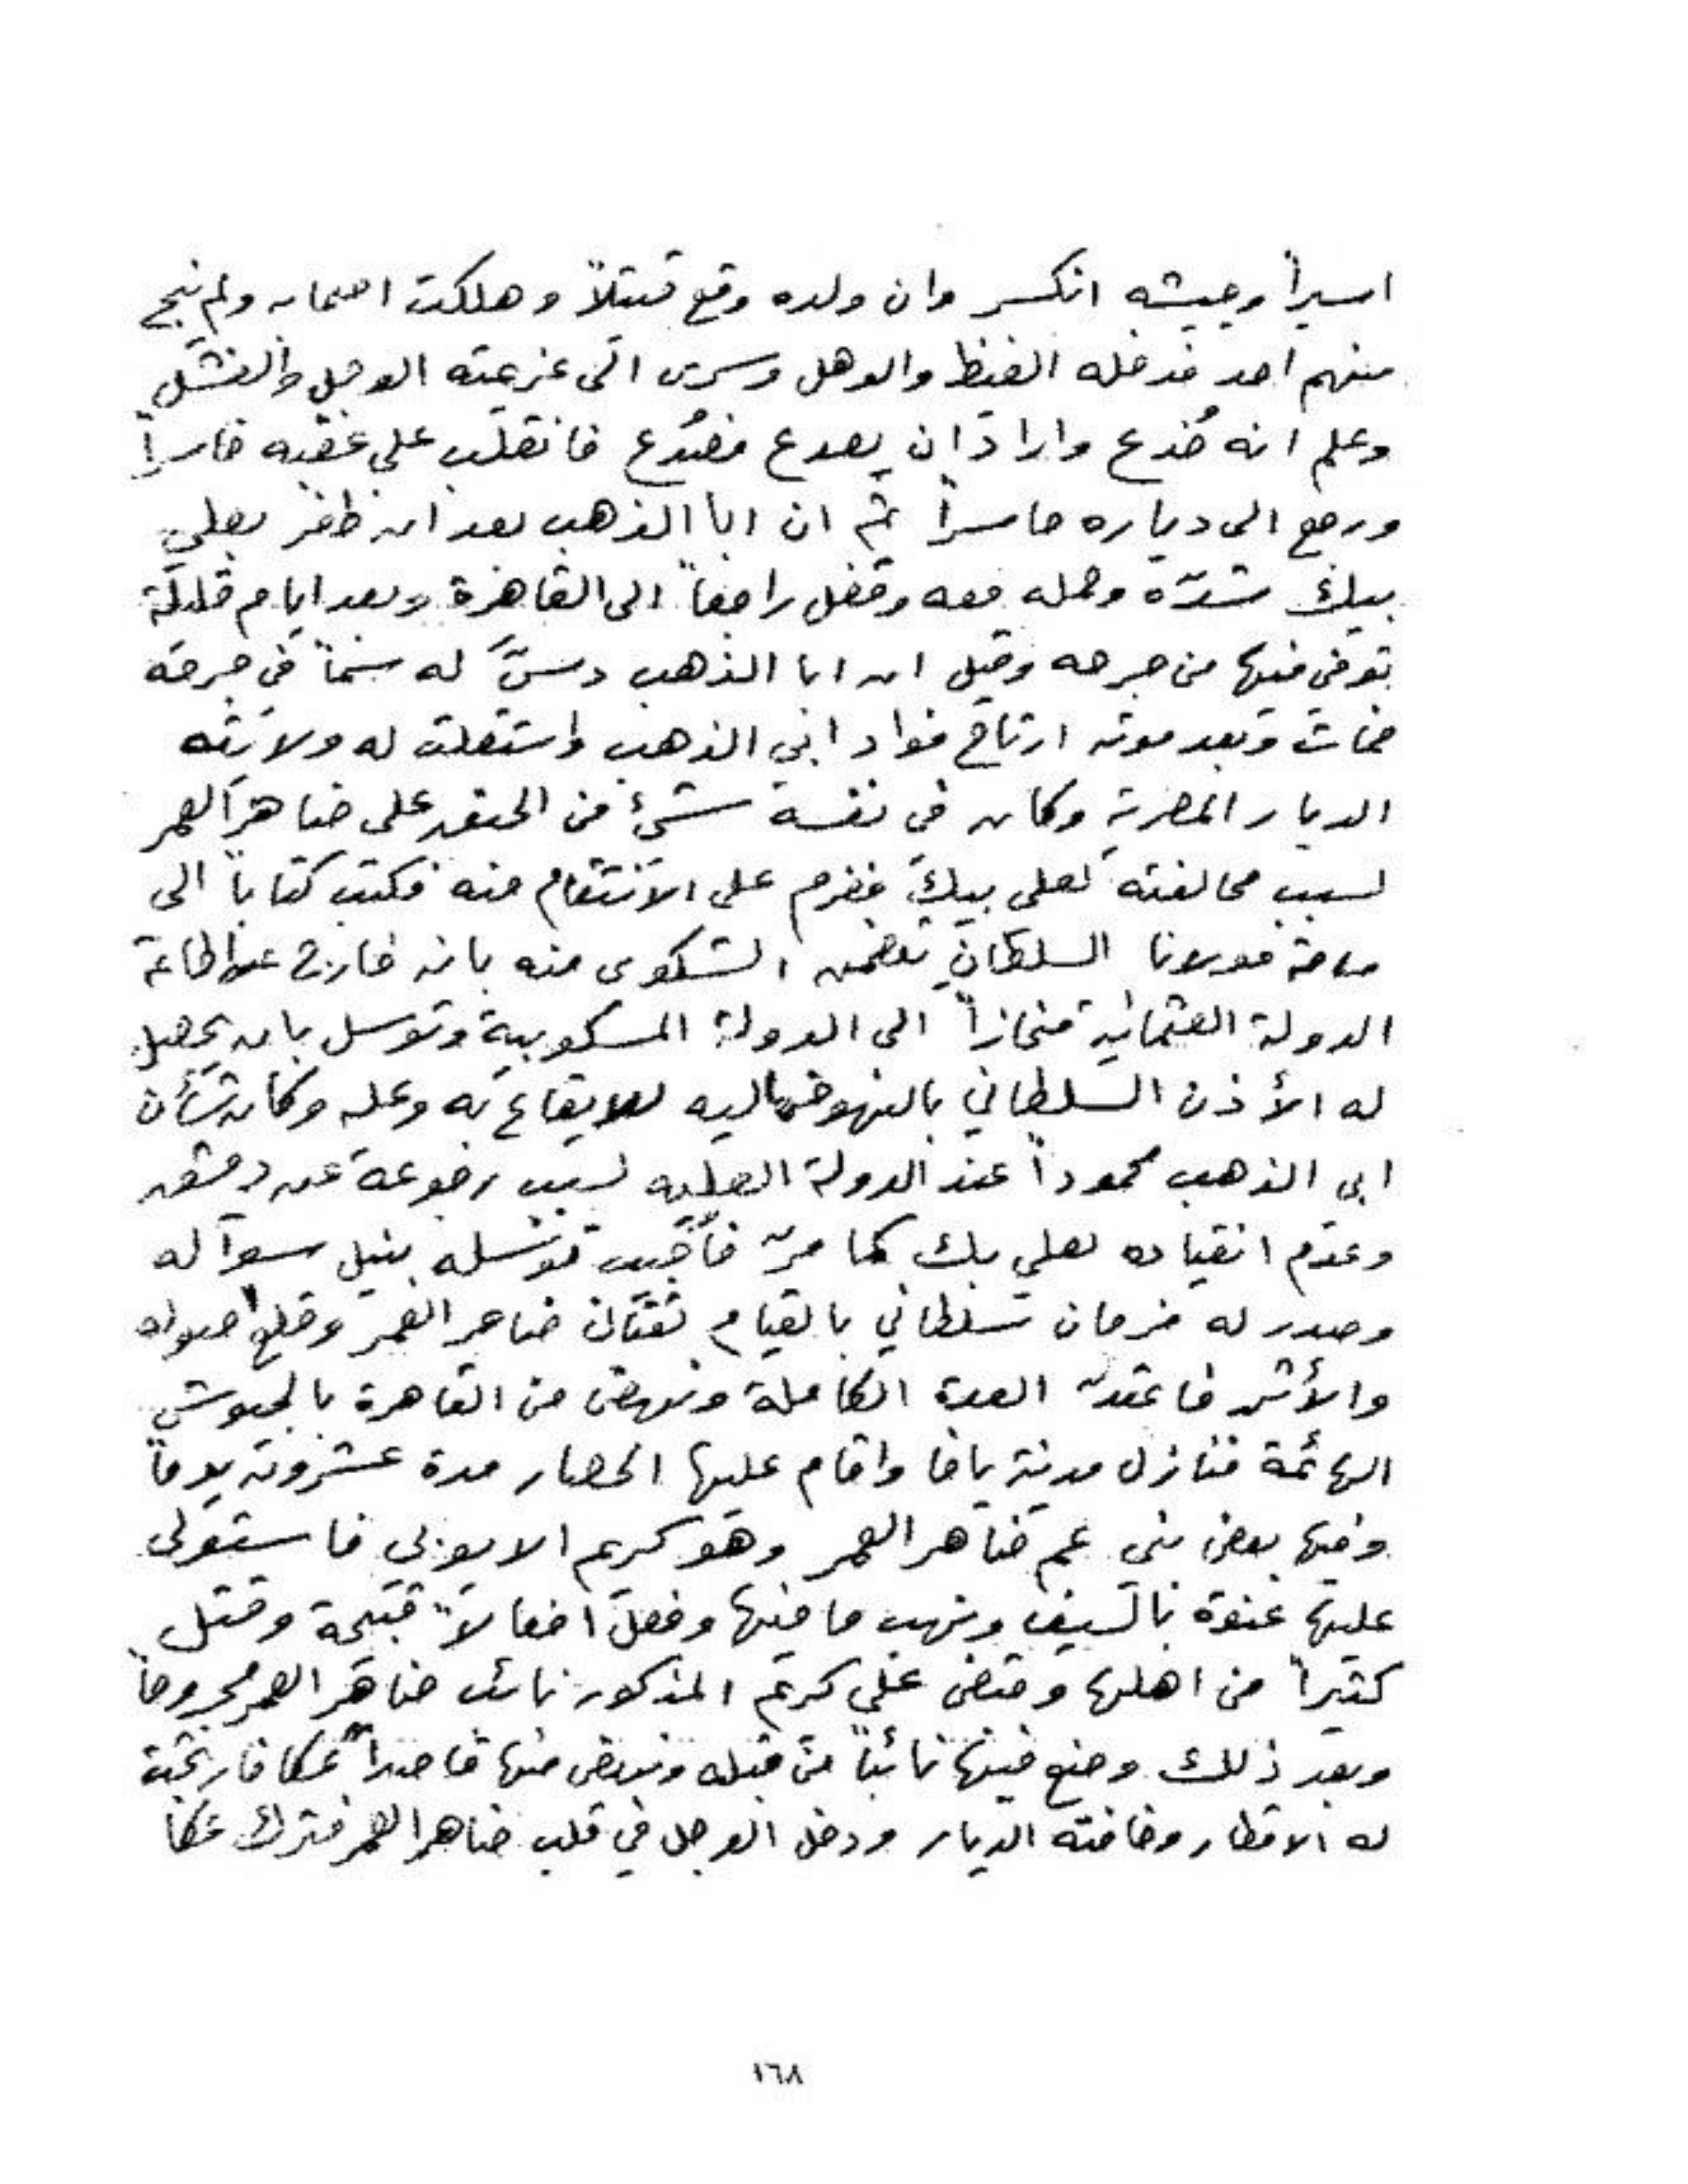 اسيراً وجيشه انكسر وان ولده وقع قتيلاً وهلكت اصحابه ولم ينج
منهم احد فدخله الغيظ والوهل وسرى الى عزيمته الوجل والفشل
وعلم انه خُدع واراد ان يصدع فصُدع فانقلب على عقبه خاسراً
ورجع الى دياره حاسراً ثم ان ابا الذهب بعد ان ظفر بعلي
بيك شدّه وحمله معه وقفل راجعاً الى القاهرة وبعد ايام قليلة
توفي فيها من جرحه وقيل ان ابا الذهب دسّ له سماً في جرحه
فمات وبعد موته ارتاح فواد ابي الذهب واستقلت له ولايته
الديار المصرية وكان في نفسه شيء من الحقد على ضاهر العمر
لسبب محالفته لعلي بيك فعزم على الانتقام منه فكتب كتاباً الى
ساحة مولانا السلطان يتضمن الشكوى منه بانه خارج عن طاعة
الدولة العثمانية منحازاً الى الدولة المسكوبية وتوسل بان يحصل
له الأذن السلطاني بالنهوض اليه للايقاع به وعليه وكان شأن
ابي الذهب محموداً عند الدولة العليه لسبب رجوعه عن دمشق
وعدم انقياده لعلي بك كما مرّ فأجيب توسله بنيل سوآله
وصدر له فرمان سلطاني بالقيام لقتال ضاهر العمر وقلع اصوله
والأثر فاعتدّ العدة الكاملة ونهض من القاهرة بالجيوش
الهائمة فنازل مدينة يافا واقام عليها الحصار مدة عشرون يوماً
وفيها بعض بني عم ضاهر العمر وهو كريم الايوبي فاستولى
عليها عنوة بالسيف ونهب ما فيها وفعل افعالاً قبيحة وقتل
كثيراً من اهلها وقبض على كريم المذكور نائب ضاهر العمر مجروحاً
وبعد ذلك وضع فيها نائباً من قبله ونهض منها قاصداً عكا فارتجت
له الاقطار وخافته الديار ودخل الوجل في قلب ضاهر العمر فترك عكا
١٦٨